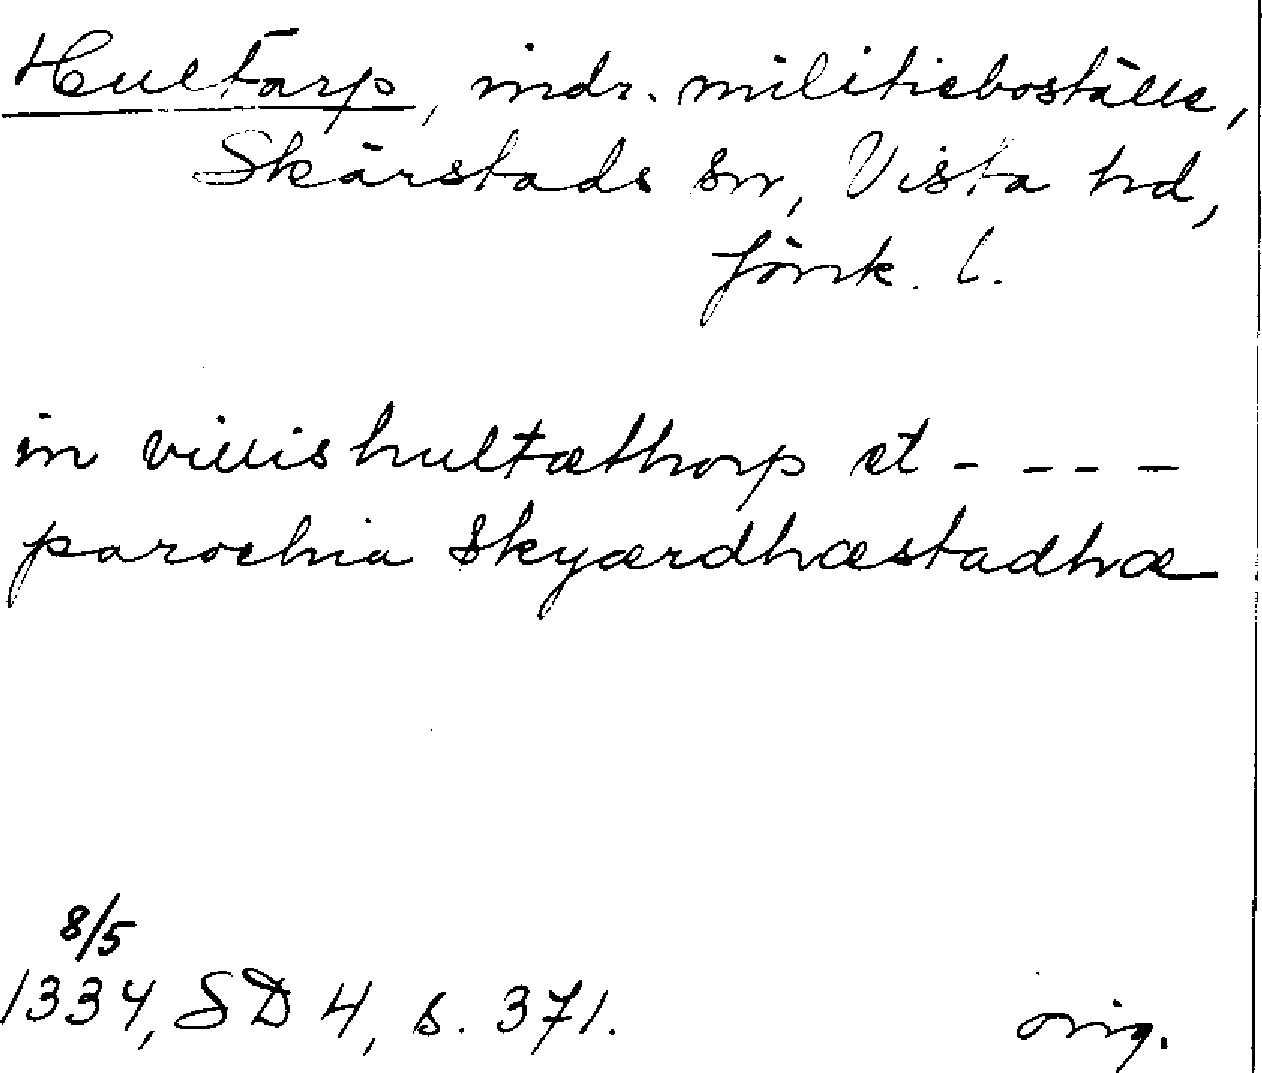 Hultarp, indr. militieboställe,
Skärstads sn, Vista hd,
Jönk. l.
in villis hultæthorp et - - - -
parochia skyærdhæstadhæ
8/5
1334, SD 4, s. 371.
orig.